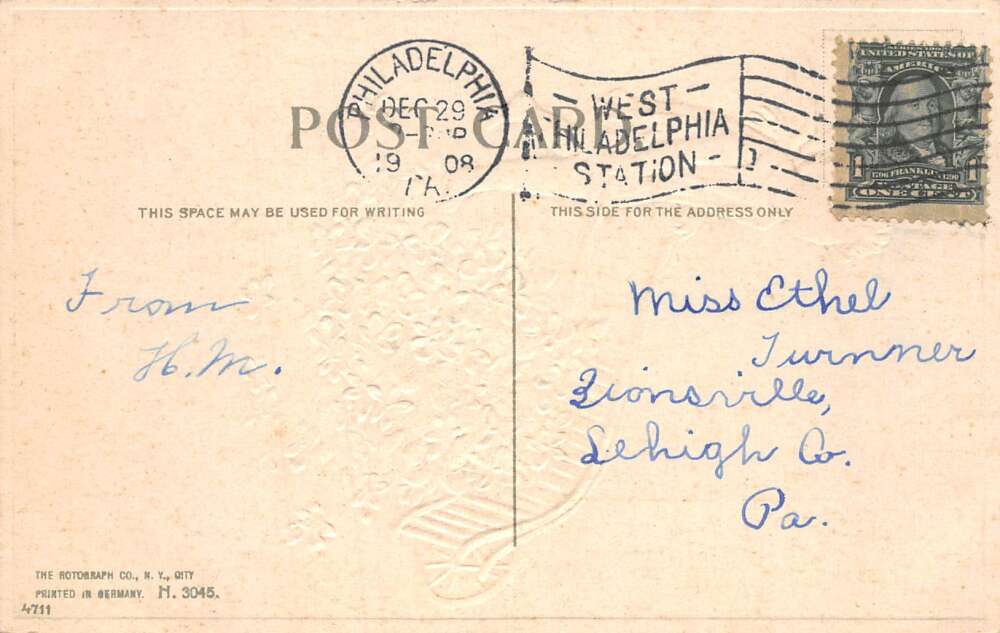 POST CARD
PHILADELPHIA
DEC 29
1908
PA.
WEST
PHILADELPHIA
STATION
SERIES 1902
UNITED STATES OF
AMERICA
1706 FRANKLIN 1790
POSTAGE
ONE CENT
THIS SPACE MAY BE USED FOR WRITING
THIS SIDE FOR THE ADDRESS ONLY
From
H.M.
Miss Ethel
Turnner
Zionsville,
Lehigh Co.
Pa.
THE ROTOGRAPH CO., N. Y., CITY
PRINTED IN GERMANY. H. 3045.
4711